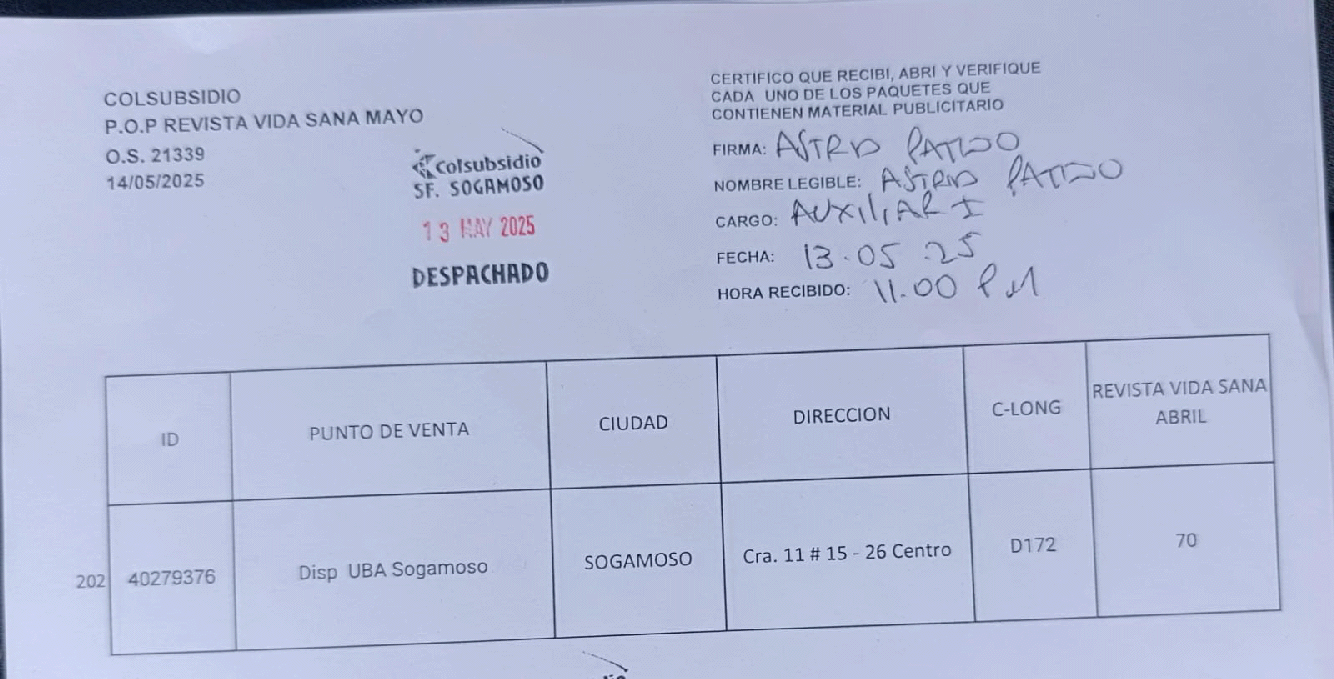 COLSUBSIDIO
P.O.P REVISTA VIDA SANA MAYO
O.S. 21339
14/05/2025
Colsubsidio
SF. SOGAMOSO
13 MAY 2025
DESPACHADO
CERTIFICO QUE RECIBI, ABRI Y VERIFIQUE
CADA UNO DE LOS PAQUETES QUE
CONTIENEN MATERIAL PUBLICITARIO
FIRMA: ASTRID PATIÑO
NOMBRE LEGIBLE: ASTRID PATIÑO
CARGO: AUXILIAR I
FECHA: 13.05.25
HORA RECIBIDO: 11.00 PM
ID PUNTO DE VENTA CIUDAD DIRECCION C-LONG REVISTA VIDA SANA
ABRIL
202 40279376 Disp UBA Sogamoso SOGAMOSO Cra. 11 # 15 - 26 Centro D172 70